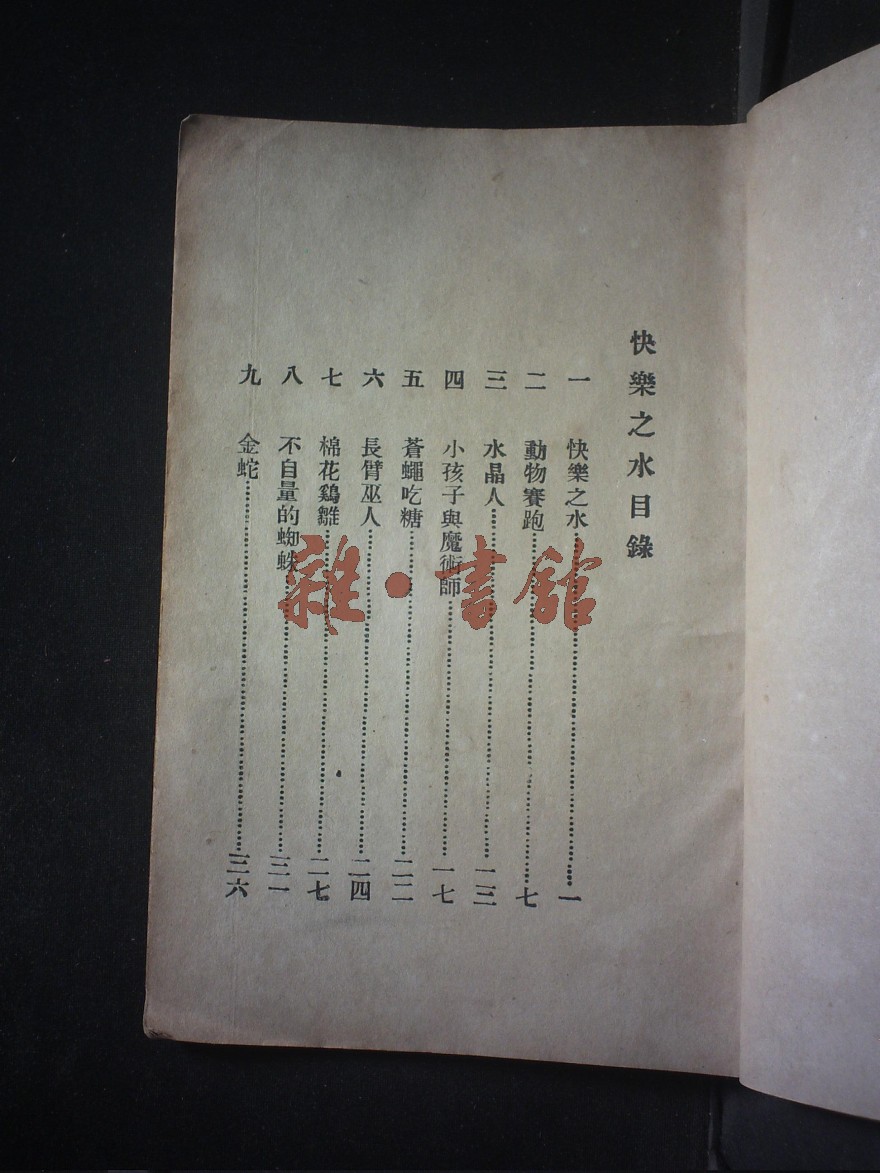 快樂之水目錄
一 快樂之水……一
二 動物賽跑……七
三 水晶人……一三
四 小孩子與魔術師……一七
五 蒼蠅吃糖……二二
六 長臂巫人……二四
七 棉花鷄雛……二七
八 不自量的蜘蛛……三一
九 金蛇……三六
雜·書館